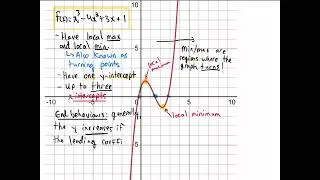 f(x) = x³-4x²+3x+1
- Have local max
and local min.
↳ Also known as
turning points
- Have one y-intercept
- Up to three
x intercepts
End behaviours: generally
the y increases if
the leading coeffi
local maximum
Min/maxs are
regions where the
graph turns!
local minimum
10
5
-10
0
5
10
-5